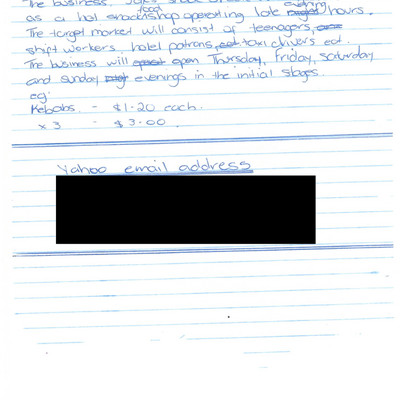 The business,
evening
food
as a hot operating late hours.
The target market will consist of teenagers,
shift workers, hotel patrons, taxi drivers ect.
The business will open Thursday, Friday, Saturday
and Sunday evenings in the initial stages.
eg:
Kebabs - $1.20 each.
x 3 - $3.00
Yahoo email address